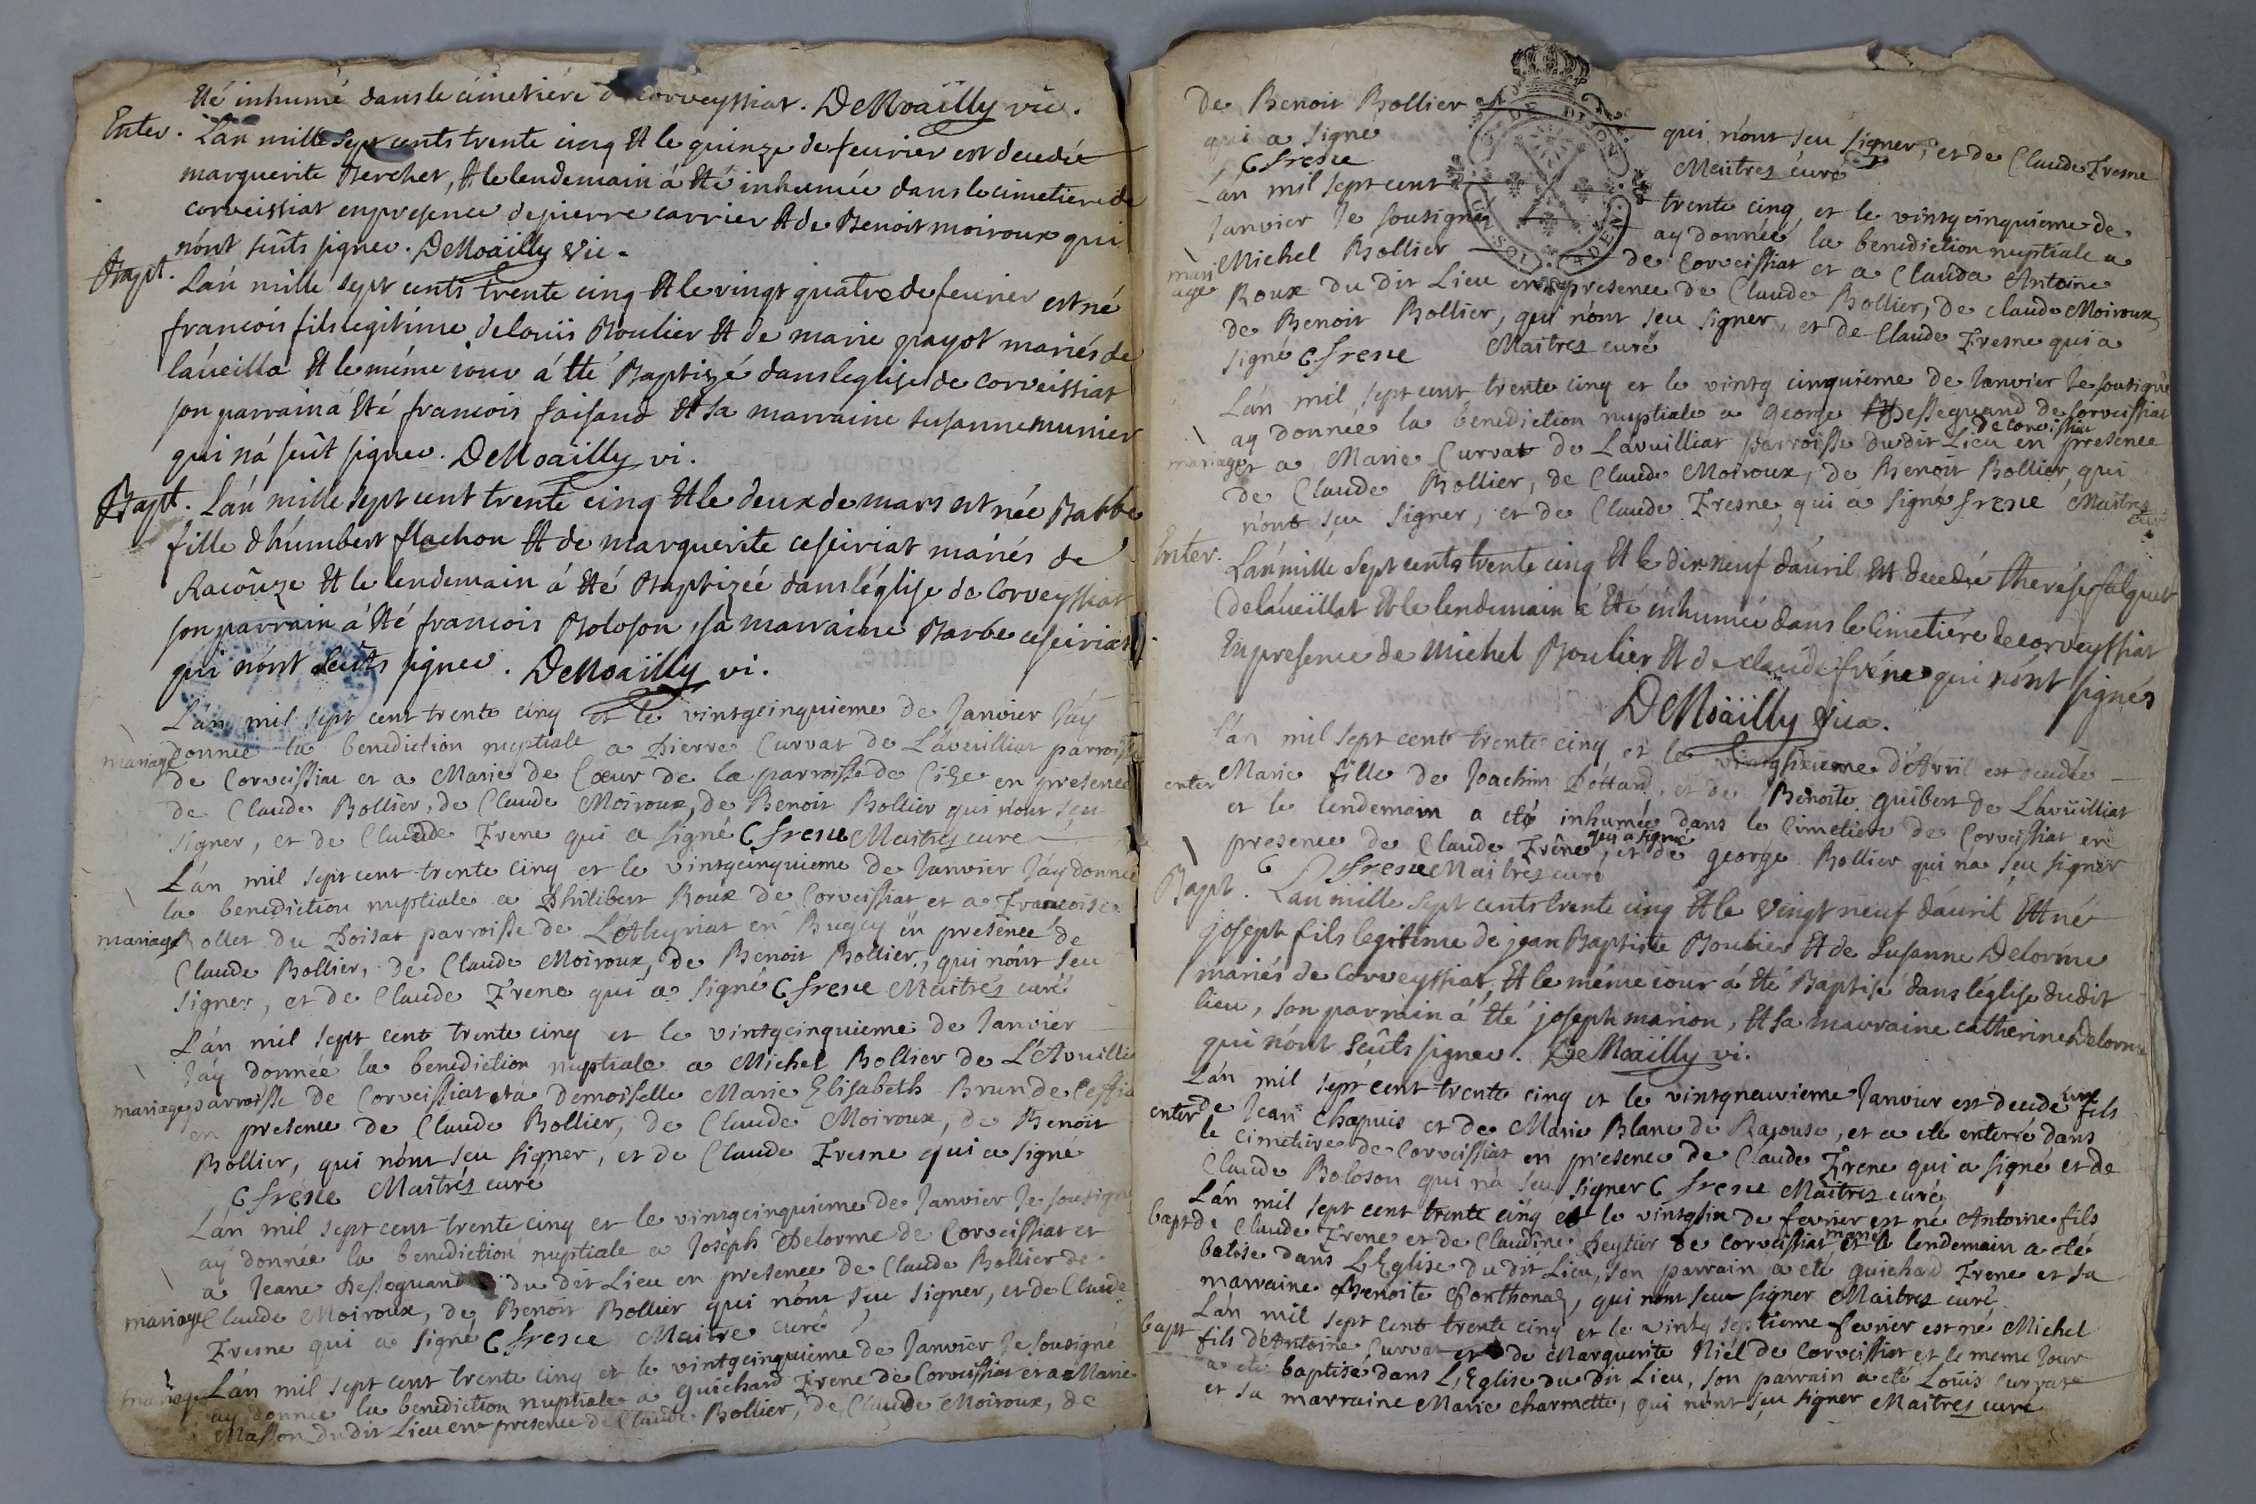 été inhumé dans le cimetiére de corveyssiat. DeMoäilly vic.
Enter. L'án mille sept cents trente cinq Et le quinze de feurier est decedée
marguerite Bercher, Et le lendemain á été inhumée dans le cimetiere de
corveissiat en presence de pierre carrier Et de Benoit moiroux qui
nónt seûts signer. DeMoäilly Vic.
Bapt. L'án mille sept cents trente cinq Et le vingt quatre de feurier est né
francois fils legitime de loüis Boulier Et de marie gayot mariés de
láueilla Et le méme iour á été Baptizé dans leglise de corveissiat
son parrain á été francois faisand Et sa marraine susanne munier
qui ná seût signer. DeMoäilly vi.
Bapt. L'án mille sept cent trente cinq Et le deux de mars est née Barbe
fille d'húmbert flachon Et de marguerite ceseiriat mariés de
Racoûze Et le lendemain á été Baptizeé dans léglise de Corveyssiat
son parrain á été francois Boloson, sa marraine Barbe ceseiriat
qui nónt seûts signer. DeMoäilly vi.
L'án mil sept cent trente cinq et le vintgcinquieme de Janvier J'áy
mariage donnée la benediction nuptiale a Pierre Curvat de Láveuilliat parroisse
de Corveissiat et a Marie de Cœur de la parroisse de Cize en presence
de Claude Bollier, de Claude Moiroux, de Benoit Bollier qui nónt seu
signer, et de Claude Frene qui a signé C frene Maitres curé
L'án mil sept cent trente cinq et le vintgcinquieme de Janvier J'áy donnée
la benediction nuptiale a Philibert Roux de Corveissiat et a Francoise
mariage Rollet du Poisat parroisse de L'Aleyriat en Bugey en presence de
Claude Bollier, de Claude Moiroux, de Benoit Bollier, qui nónt seu
signer, et de Claude Frene qui a signé C frene Maitres curé
L'án mil sept cent trente cinq et le vintgcinquieme de Janvier
J'áy donnée la benediction nuptiale a Michel Bollier de L'Avuillia
mariage parroisse de Corveissiat et a demoiselle Marie Elisabeth Brun de Ceffia
en presence de Claude Bollier, de Claude Moiroux, de Benoit
Bollier, qui nónt seu signer, et de Claude Fresne qui a signé
C frene Maitrés curé
L'án mil sept cent trente cinq et le vintgcinquieme de Janvier Je sousigné
aÿ donnée la benediction nuptiale a Joseph Delorme de Corveissiat et
a Jeane Desseguand du dit Lieu en presence de Claude Bollier de
mariage Claude Moiroux, de Benoit Bollier qui nónt seu signer, et de Claude
Fresne qui a signé C fresne Maitre curé
L'án mil sept cent trente cinq et le vintgcinquieme de Janvier Je sousigné
mariage ay donnée la benediction nuptiale a guichard Frene de Corveissiat et a Marie
Masson du dit Lieu en presence de Claude Bollier, de Claude Moiroux, de
de Benoit Bollier qui nónt seu signer, et de Claude Fresne
qui a signé
C fresne Maitres curé
L'án mil sept cent trente cinq, et le vintgcinquieme de
Janvier Je sousigné ay donnée la benediction nuptiale a
mariage Michel Bollier de Corveissiat et a Clauda Antoine
Roux du dit Lieu en presence de Claude Bollier, de claude Moiroux,
de Benoit Bollier, qui nónt seu signer, et de Claude Fresne qui a
signé C fresne Maitres curé
L'án mil sept cent trente cinq et le vintg cinquieme de Janvier Je sousigné
ay donnée la benediction nuptiale a george Desseguand de Corveissiat
mariage et a Marie Curvat de Lavuilliat parroisse du dit Lieu de corveissiat en presence
de Claude Bollier, de Claude Moiroux, de Benoit Bollier, qui
n'ont seu signer, et de Claude Fresne, qui a signé fresne Maitres
curé
Enter. L'án mille sept cents trente cinq Et le dix neuf dáuril Est decedée therése falquet
de láueïllat Et le lendemain á Eté inhumée dans le Cimetiére de corveyssiat
En presence de Michel Boulier Et de claude fréne qui nónt signés
DeMoäilly Vica.
L'án mil sept cent trente cinq et le vintgsixieme d'Avril est decedée
enter Marie fille de Joachim Pottard, et de Benoite guibert de Lávüilliat
et le lendemain a eté inhumée dans le Cimetiere de Corveissiat en
presence de Claude Frêne qui a signé, et de george Bollier qui na seu signer
C fresne Maitres curé
Bapt. L'án mille sept cents trente cinq Et le vingt neuf dáuril Est né
joseph fils legitime de jean Baptiste Boulier Et de Susanne Delorme
mariés de Corveyssiat, Et le méme iour á été Baptisé dans léglise dudit
lieu, son parrain á été joseph marion, Et sa marraine catherine Delorme
qui nónt seûts signer. DeMoäilly vi.
L'án mil sept cent trente cinq et le vintgneuvieme Janvier est decedé fils
enter de Jean Chapuis et de Marie Blanc de Racouse, et a eté enterré dans
le Cimetiere de Corveissiat en presence de Claude Frene qui a signé et de
Claude Boloson qui ná seu signer C fresne Maitres curé
L'án mil sept cent trente cinq et le vintgsix de fevrier est né Antoine fils
bapt de Claude Frene et de Claudine Peytier de Corveissiat et le lendemain a eté
batisé dans L'Eglise du dit Lieu, son parrain a eté guichard Frene et sa
marraine Benoite Ponthonaz, qui nónt seu signer Maitres curé
L'án mil sept cent trente cinq et le vintg septieme fevrier est né Michel
bapt fils d'Antoine Curvat et de Marguerite Niél de Corveissiat et le meme Jour
a eté baptisé dans L'Eglise du dit Lieu, son parrain a eté Loüis Curvat
et sa marraine Marie charmette, qui nónt seu signer Maitres curé